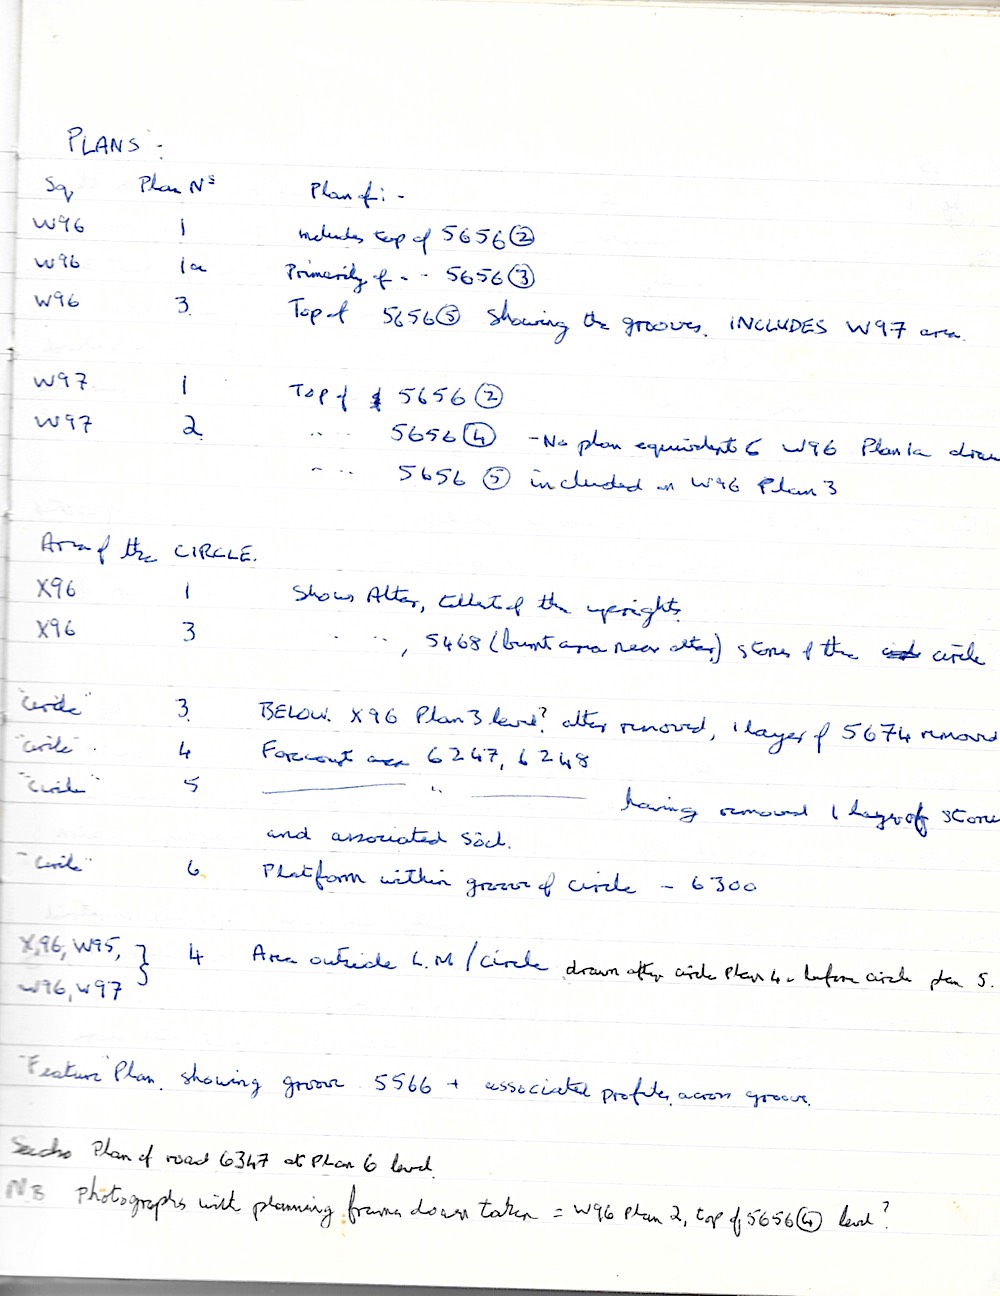 PLANS :-
Sq Plan Nˢ Plan of: -
W96 1 includes top of 5656 ②
W96 1a Primarily of - - 5656 ③
W96 3 Top of 5656 ⑤ showing the grooves. INCLUDES W97 area.
W97 1 Top of 5656 ②
W97 2 " " 5656 ④ - No plan equivalent to W96 Plan 1a drawn
" " 5656 ⑤ included on W96 Plan 3
Area of the CIRCLE.
X96 1 Shows Altar, tallest of the uprights.
X96 3 " ", 5468 (burnt area near altar) stones of the circle
"circle" 3 BELOW X96 Plan 3 level? altar removed, 1 layer of 5674 removed
"circle" 4 Forecourt area 6247, 6248
"circle" 5 " having removed 1 layer of stone
and associated soil.
"circle" 6 Platform within groove of circle - 6300
X,96, W95, } 4 Area outside L.M / circle drawn after circle Plan 4 - before circle plan 5.
W96, W97
"Feature" Plan. showing groove 5566 + associated profiles across groove.
Plan of road 6347 at Plan 6 level.
NB Photographs with planning frame down taken = W96 Plan 2, top of 5656 ④ level?